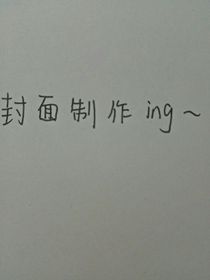 封面制作ing~